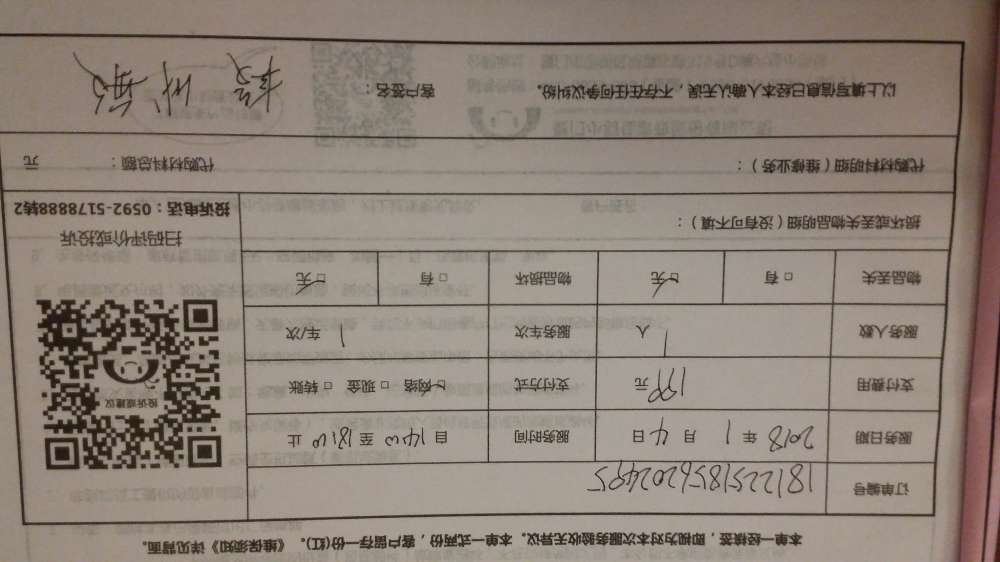 本单一经核签，即视为对本次服务验收无异议。本单一式两份，客户留存一份(红)。《维保须知》详见背面。
订单编号 181225185620249S
服务日期 2018 年 1 月 4 日 服务时间 自 14:00 至 18:00 止
支付费用 199 元 支付方式 网络 □ 现金 □ 转账
服务人数 1 人 服务车次 1 车/次
物品丢失 □ 有 □ 无 物品损坏 □ 有 □ 无
投诉或建议
损坏或丢失物品明细（没有可不填）：
扫码评价或投诉
投诉电话：0592-5178888转2
代购材料明细（维修业务）： 代购材料总额： 元
以上填写信息已经本人确认无误，不存在任何争议纠纷。 客户签名：